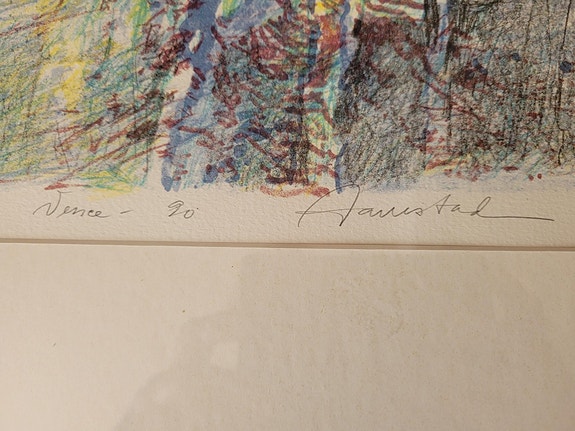 Vence - 90 Hamstad